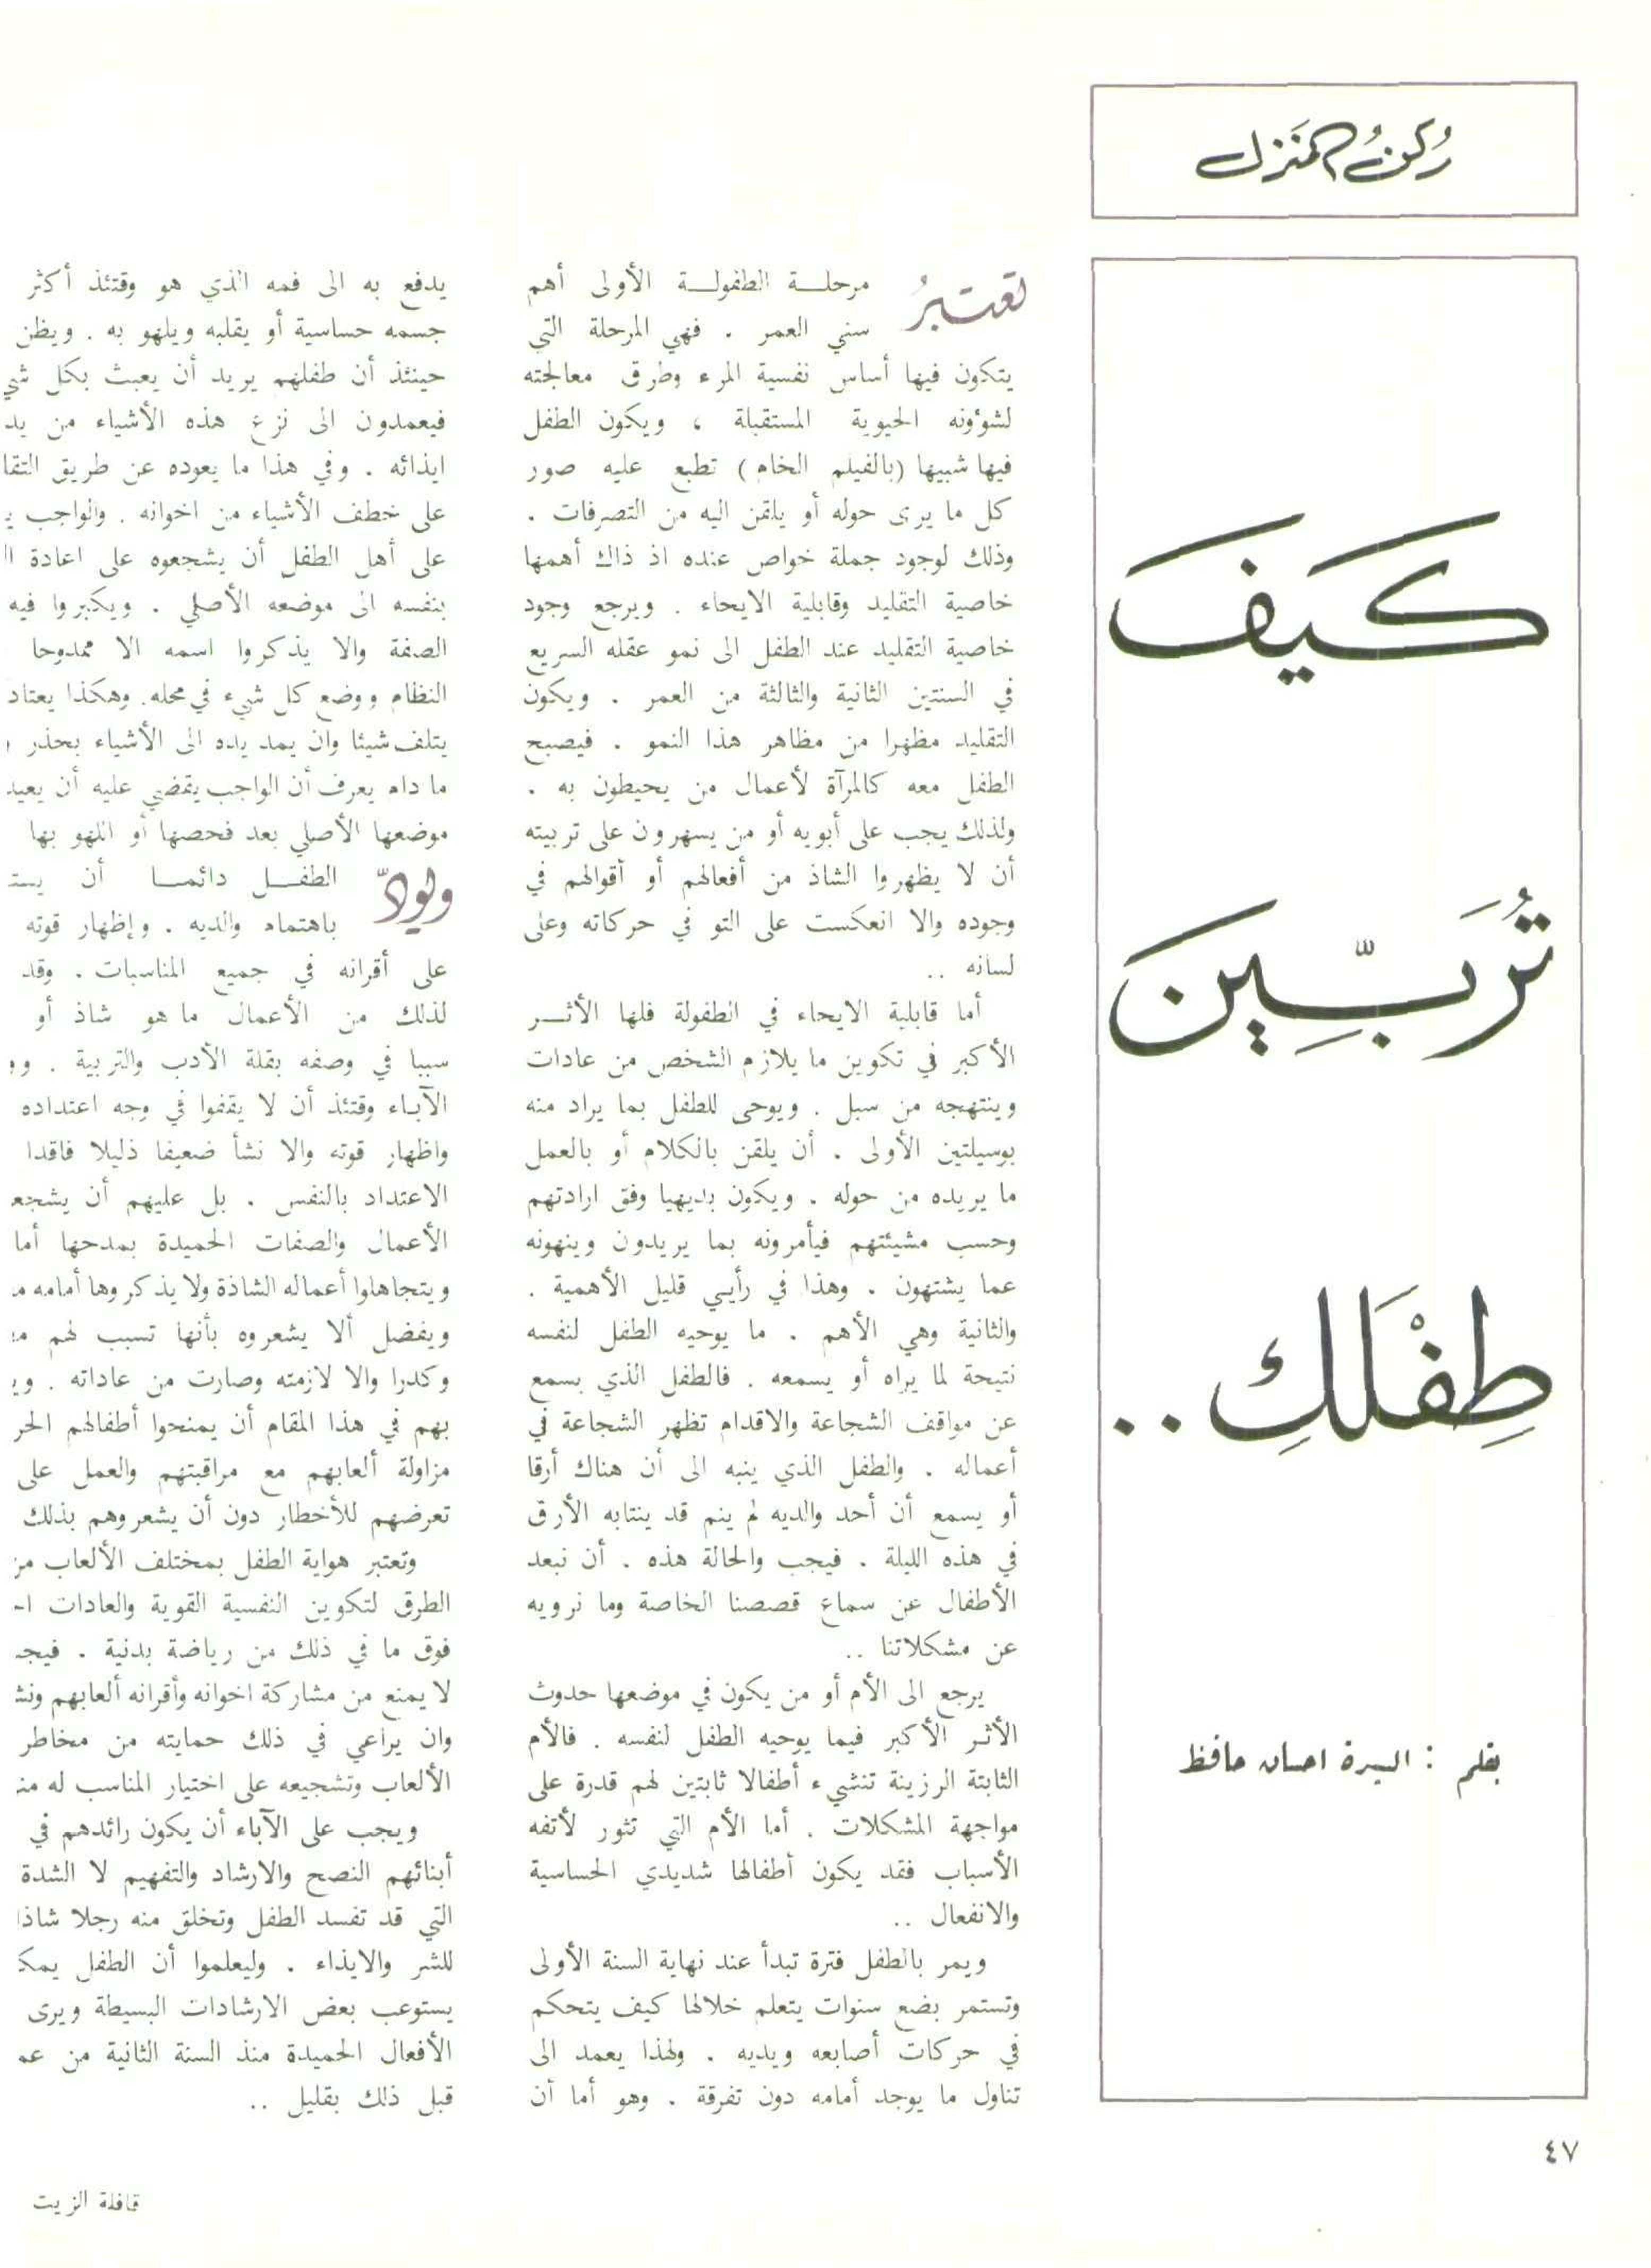 رُكنُ المنَزل
كَيفَ
تُرَبِّينَ
طِفْلَكِ ..
بقلم : السيدة احسان حافظ
تعتبرُ مرحلة الطفولة الأولى أهم
سني العمر . فهي المرحلة التي
يتكون فيها أساس نفسية المرء وطرق معالجته
لشؤونه الحيوية المستقبلة ، ويكون الطفل
فيها شبيها (بالفيلم الخام) تطبع عليه صور
كل ما يرى حوله أو يلقن اليه من التصرفات .
وذلك لوجود جملة خواص عنده اذ ذاك أهمها
خاصية التقليد وقابلية الايحاء . ويرجع وجود
خاصية التقليد عند الطفل الى نمو عقله السريع
في السنتين الثانية والثالثة من العمر . ويكون
التقليد مظهرا من مظاهر هذا النمو . فيصبح
الطفل معه كالمرآة لأعمال من يحيطون به .
ولذلك يجب على أبويه أو من يسهرون على تربيته
أن لا يظهروا الشاذ من أفعالهم أو أقوالهم في
وجوده والا انعكست على التو في حركاته وعلى
لسانه ..
أما قابلية الايحاء في الطفولة فلها الأثر
الأكبر في تكوين ما يلازم الشخص من عادات
وينتهجه من سبل . ويوحى للطفل بما يراد منه
بوسيلتين الأولى . أن يلقن بالكلام أو بالعمل
ما يريده من حوله . ويكون بديهيا وفق ارادتهم
وحسب مشيئتهم فيأمرونه بما يريدون وينهونه
عما يشتهون . وهذا في رأيي قليل الأهمية .
والثانية وهي الأهم . ما يوحيه الطفل لنفسه
نتيجة لما يراه أو يسمعه . فالطفل الذي يسمع
عن مواقف الشجاعة والاقدام تظهر الشجاعة في
أعماله . والطفل الذي ينبه الى أن هناك أرقا
أو يسمع أن أحد والديه لم ينم قد ينتابه الأرق
في هذه الليلة . فيجب والحالة هذه . أن نبعد
الأطفال عن سماع قصصنا الخاصة وما نرويه
عن مشكلاتنا ..
يرجع الى الأم أو من يكون في موضعها حدوث
الأثر الأكبر فيما يوحيه الطفل لنفسه . فالأم
الثابتة الرزينة تنشيء أطفالا ثابتين لهم قدرة على
مواجهة المشكلات . أما الأم التي تثور لأتفه
الأسباب فقد يكون أطفالها شديدي الحساسية
والانفعال ..
ويمر بالطفل فترة تبدأ عند نهاية السنة الأولى
وتستمر بضع سنوات يتعلم خلالها كيف يتحكم
في حركات أصابعه ويديه . ولهذا يعمد الى
تناول ما يوجد أمامه دون تفرقة . وهو أما أن
يدفع به الى فمه الذي هو وقتئذ أكثر
جسمه حساسية أو يقلبه ويلهو به . ويظن
حينئذ أن طفلهم يريد أن يعبث بكل
فيعمدون الى نزع هذه الأشياء من
ايذائه . وفي هذا ما يعوده عن طريق
على خطف الأشياء من اخوانه . والواجب
على أهل الطفل أن يشجعوه على اعادة
بنفسه الى موضعه الأصلي . ويكبروا فيه
الصفة والا يذكروا اسمه الا ممدوحا
النظام ووضع كل شيء في محله . وهكذا يعتاد
يتلف شيئا وان يمد يده الى الأشياء بحذر
ما دام يعرف أن الواجب يقضي عليه أن يعيد
موضعها الأصلي بعد فحصها أو اللهو بها
ويودّ الطفل دائما أن
باهتمام والديه . وإظهار قوته
على أقرانه في جميع المناسبات . وقد
لذلك من الأعمال ما هو شاذ أو
سببا في وصفه بقلة الأدب والتربية .
الآباء وقتئذ أن لا يقفوا في وجه اعتداده
واظهار قوته والا نشأ ضعيفا ذليلا فاقدا
الاعتداد بالنفس . بل عليهم أن
الأعمال والصفات الحميدة بمدحها
ويتجاهلوا أعماله الشاذة ولا يذكروها أمامه
ويفضل ألا يشعروه بأنها تسبب لهم
وكدرا والا لازمته وصارت من عاداته .
بهم في هذا المقام أن يمنحوا أطفالهم
مزاولة ألعابهم مع مراقبتهم والعمل على
تعرضهم للأخطار دون أن يشعروهم بذلك
وتعتبر هواية الطفل بمختلف الألعاب
الطرق لتكوين النفسية القوية والعادات
فوق ما في ذلك من رياضة بدنية .
لا يمنع من مشاركة اخوانه وأقرانه ألعابهم
وان يراعي في ذلك حمايته من مخاطر
الألعاب وتشجيعه على اختيار المناسب له
ويجب على الآباء أن يكون رائدهم في
أبنائهم النصح والارشاد والتفهيم لا الشدة
التي قد تفسد الطفل وتخلق منه رجلا شاذا
للشر والايذاء . وليعلموا أن الطفل
يستوعب بعض الارشادات البسيطة ويرى
الأفعال الحميدة منذ السنة الثانية من
قبل ذلك بقليل ..
٤٧
قافلة الزيت